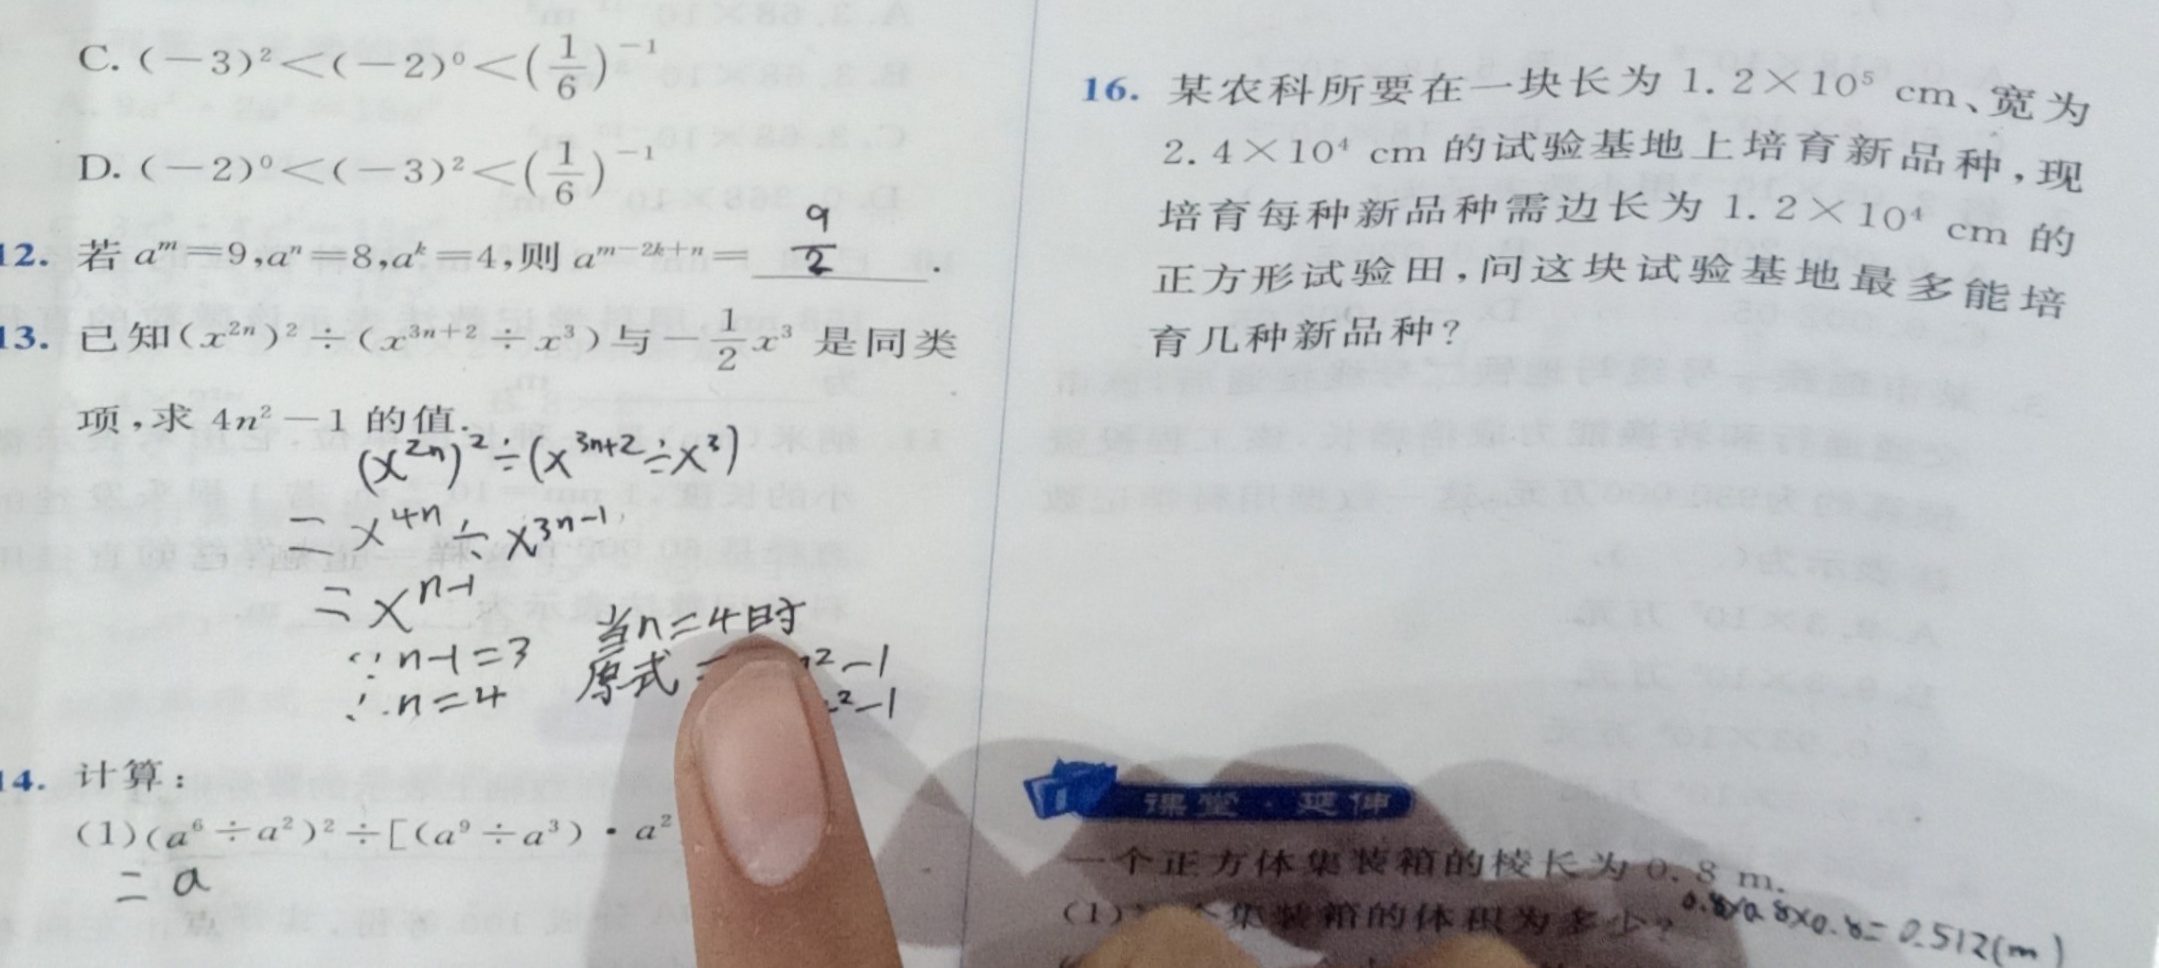 C. (-3)²<(-2)⁰<(1/6)⁻¹
D. (-2)⁰<(-3)²<(1/6)⁻¹
12. 若 aᵐ=9,aⁿ=8,aᵏ=4,则 aᵐ⁻²ᵏ⁺ⁿ= 9/2 .
13. 已知(x²ⁿ)²÷(x³ⁿ⁺²÷x³)与-1/2x³ 是同类
项,求 4n²-1 的值.
(x²ⁿ)²÷(x³ⁿ⁺²÷x³)
=x⁴ⁿ÷x³ⁿ⁻¹
=xⁿ⁻¹
∵n-1=3
∴n=4
当n=4时
原式=
²-1
²-1
14. 计算:
(1)(a⁶÷a²)²÷[(a⁹÷a³)·a²
= a
16. 某农科所要在一块长为 1.2×10⁵ cm、宽为
2.4×10⁴ cm 的试验基地上培育新品种,现
培育每种新品种需边长为 1.2×10⁴ cm 的
正方形试验田,问这块试验基地最多能培
育几种新品种?
课堂·延伸
一个正方体集装箱的棱长为 0.8 m.
(1) 个集装箱的体积为多少?
0.8×0.8×0.8=0.512(m)